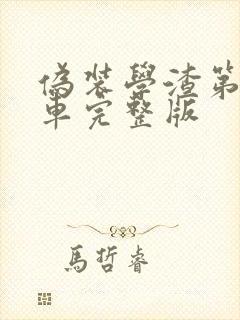 偽裝學渣第
車完整版
馬哲睿